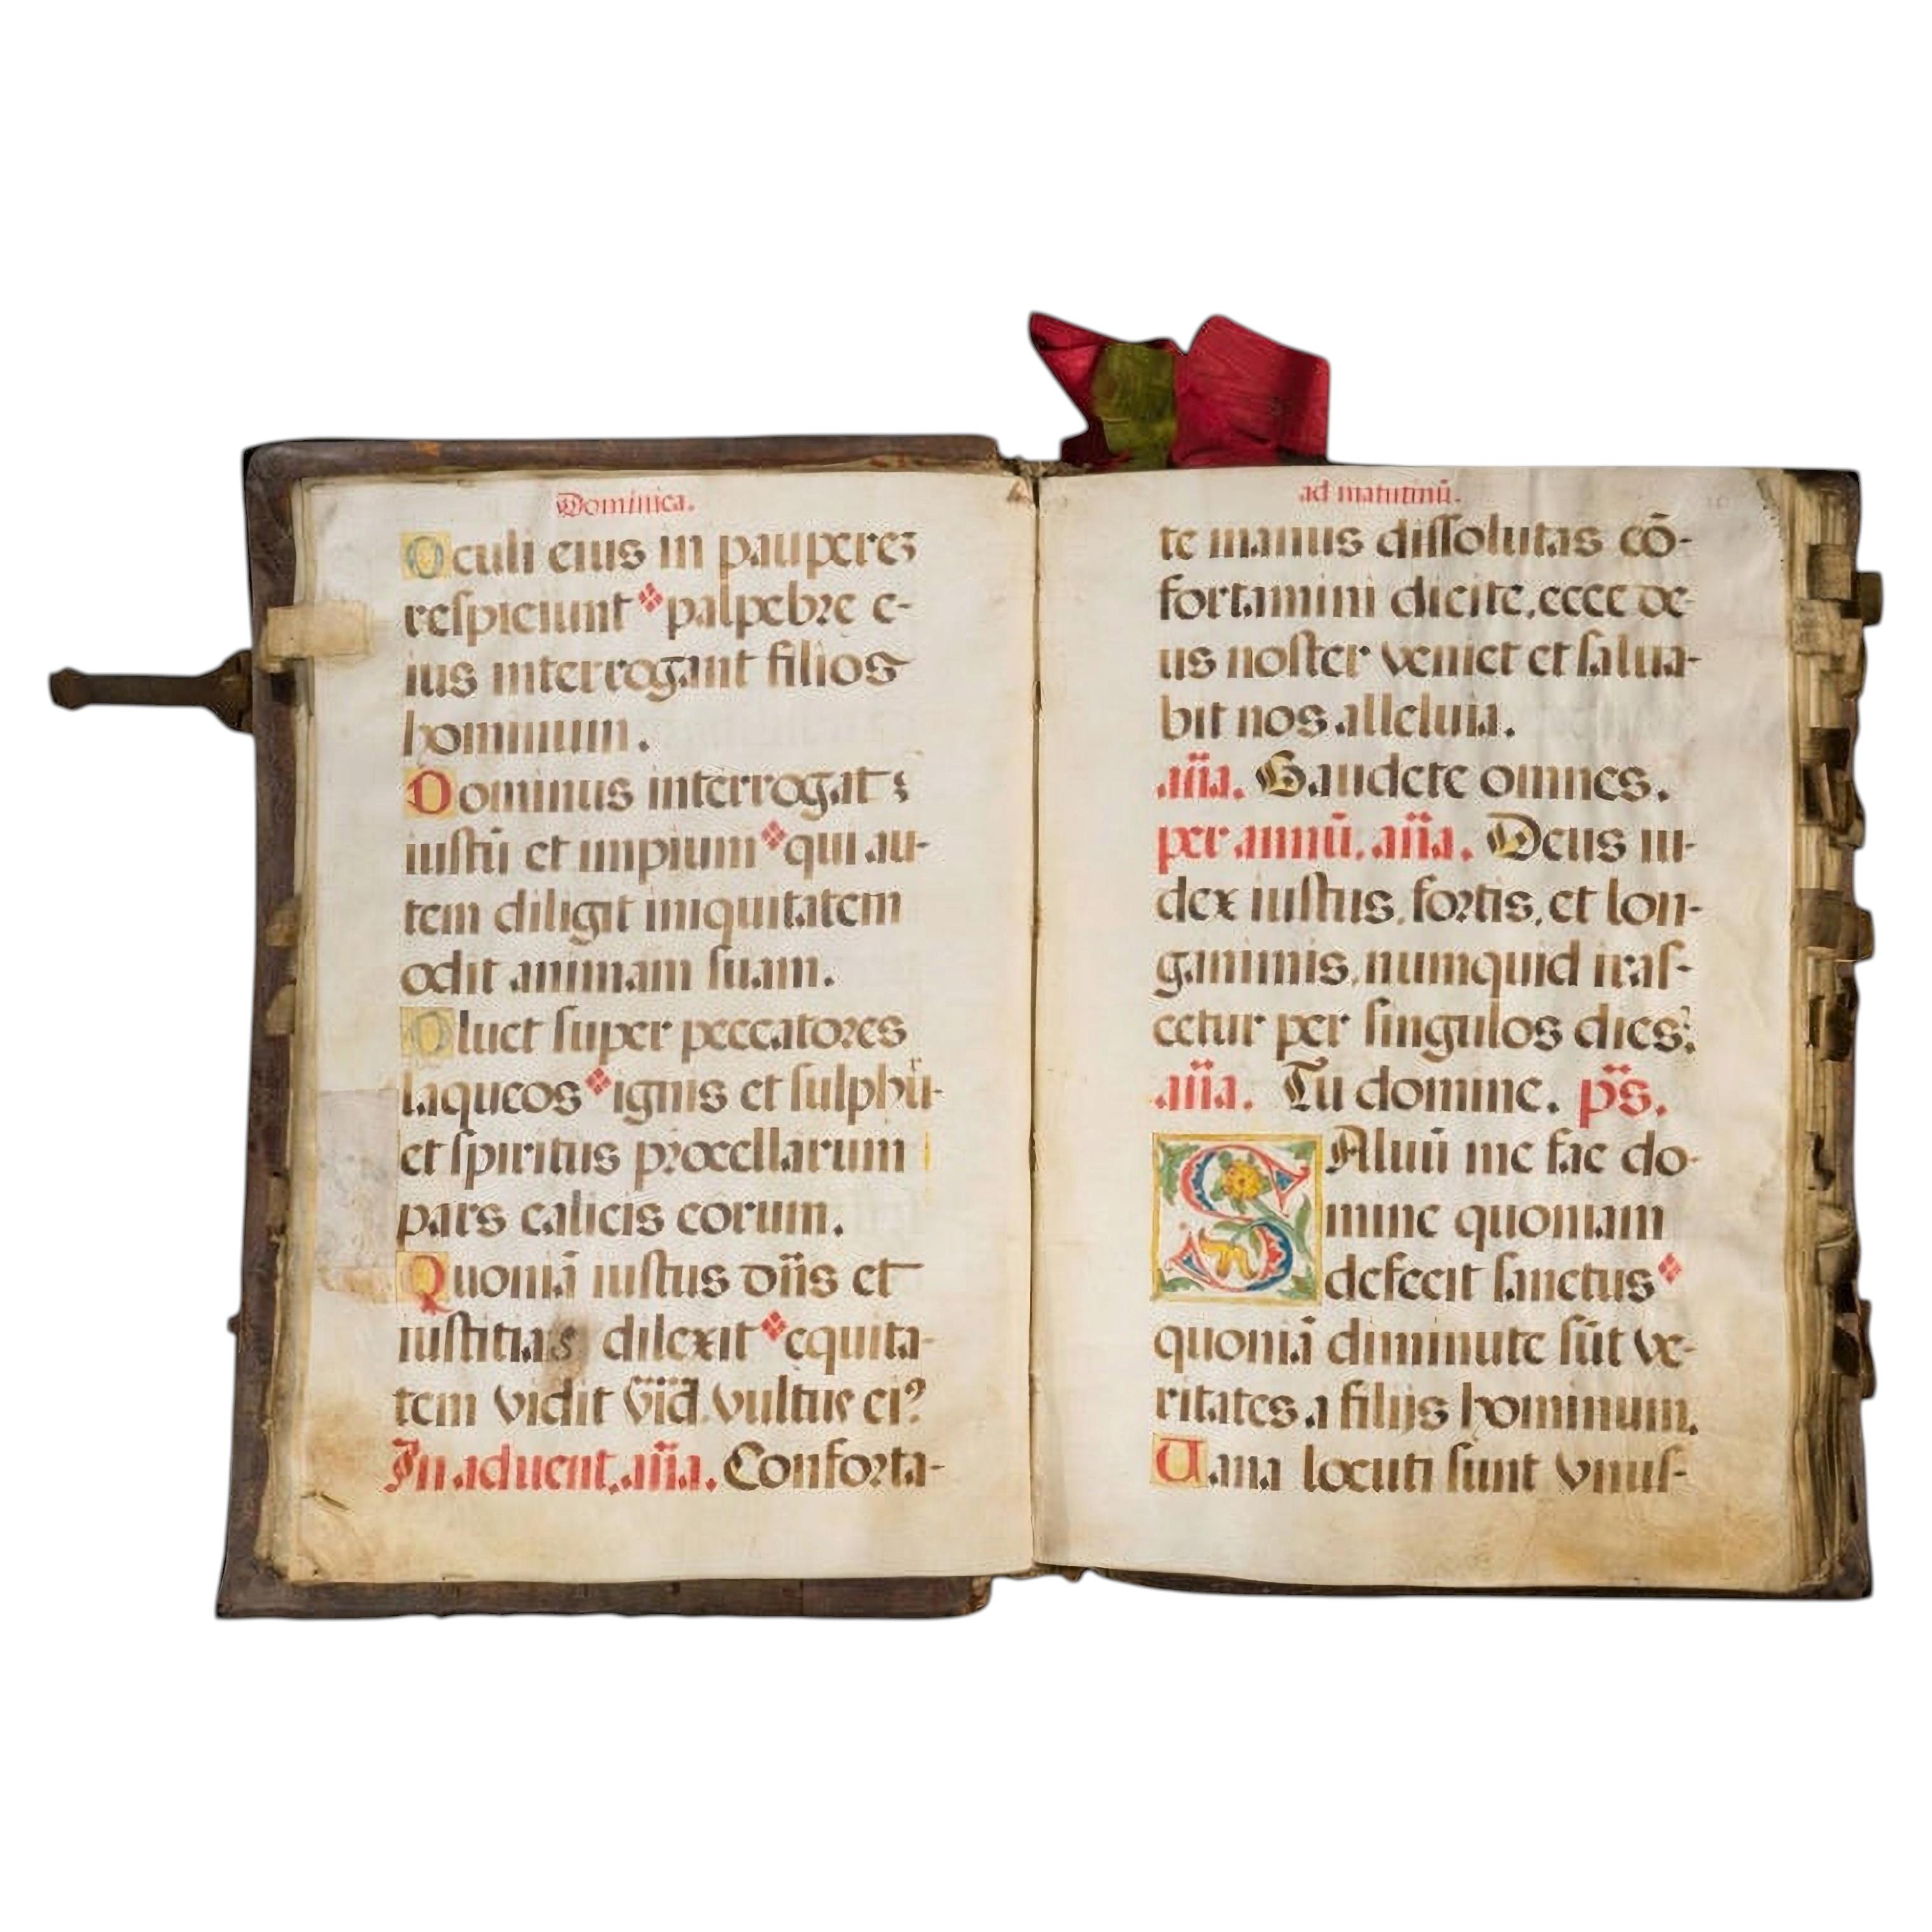 Dominica.
Oculi eius in pauperes
respiciunt palpebre e-
ius interrogant filios
hominum.
Dominus interrogat
iustū et impium qui au-
tem diligit iniquitatem
odit animam suam.
Pluet super peccatores
laqueos ignis et sulphu-
et spiritus procellarum
pars calicis eorum.
Quoniā iustus dn̄s et
iustitias dilexit equita-
tem vidit vultus ei
In aduent. an̄a. Conforta-
ad matutinū.
te manus dissolutas cō-
fortamini dicite, ecce de-
us noster veniet et salua-
bit nos alleluia.
an̄a. Gaudete omnes.
per annū. an̄a. Deus iu-
dex iustus, fortis, et lon-
ganimis, numquid iras-
cetur per singulos dies:
an̄a. Tu domine. ps̄.
SAluū me fac do-
mine quoniam
defecit sanctus
quoniā diminute sūt ve-
ritates a filijs hominum.
Uana locuti sunt vnus-